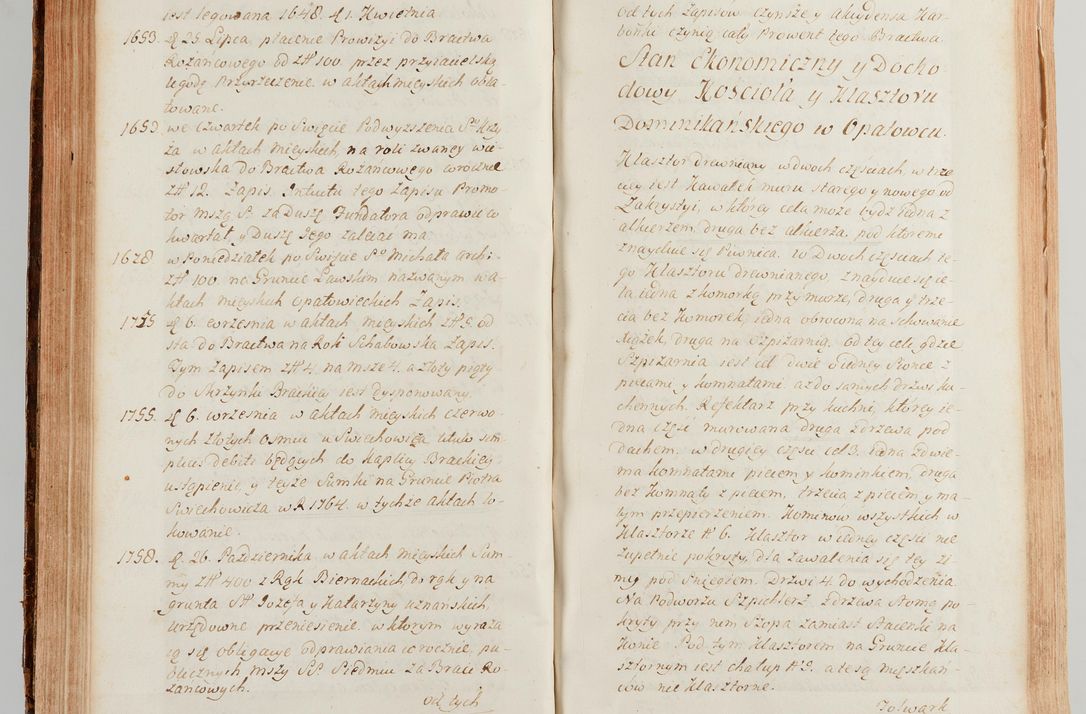 iest legowana 1648. d 1. Kwietnia
1653. d 25 Lipca płacenie Prowizyi do Bractwa
Rożancowego od zł 100. przez przyiacielską
ugodę Przyrzeczenie. w aktach mieyskich obla-
towane.
1653. we Czwartek po Swięcie Podwyższenia S° Krzy
ża w aktach mieyskich na roli zwaney wie-
słowska do Bractwa Rożancowego corocznie
zł 12. Zapis. Intuitu tego Zapisu Promo-
tor mszą S. za Duszę Fundatora odprawić co
kwartał y Duszę Jego zalecać ma
1628 w Poniedziałek po Swięcie S° Michała Archi.
zł 100. na Gruncie Ławskim nazwanym w a-
ktach mieyskich Opatowieckich Zapis.
1755 d 6. września w aktach mieyskich od
sta do Bractwa na Roli Schabowska Zapis.
Tym Zapisem zł 4. na msze 4. a złoty piąty
do Skrzynki Brackiey iest dysponowany.
1755. d 6. września w aktach mieyskich czerwo-
nych złotych Osmiu u Swiechowicza titulo sim-
plicis debiti będących do Kaplicy Brackiey
ustąpienie, y teyże Summki na Gruncie Piotra
Swiechowicza w R 1764. w tychże aktach lo-
kowanie.
1758. d. 26. Pazdziernika w aktach mieyskich Sum-
my zł 400 z Rąk Biernackich do rąk y na
grunta Józefa y Katarzyny Uznanskich,
Urzędowne przeniesienie. w ktorym wyraża
ią się obligacye odprawiania corocznie, pu-
blicznych mszy SS. Siedmiu za Braci Ro-
żancowych.
od tych
od tych Zapisow czynsze y akcydensa Kar-
bonki czynią cały Prowent tego Bractwa.
Stan Ekonomiczny y Docho-
dowy Kościoła y Klasztoru
Dominikańskiego w Opatowcu.
Klasztor drewniany w dwoch częsciach, w trze-
ciey iest Kawałek muru starego y nowego od
Zakrystyi, w ktorey cela może bydz iedna z
alkierzem, druga bez alkierza, pod ktoremi
znayduie się Piwnica. w Dwoch częsciach te-
go Klasztoru drewnianego, znayduie się ce-
la iedna z komorką przy murze, druga y trze-
cia bez Komorek, iedna obrocona na Schowanie
xiążek, druga na Szpiżarnią. Od tey cele gdzie
Szpiżarnia iest cel dwie o iedney stronce z
piecami y komnatami aż do samych drzwi ku-
chennych. Refektarz przy kuchni, ktorey ie-
dna część murowana druga zdrzewa pod
dachem. w drugiey częsci cel 3. iedna z dwie-
ma komnatami piecem y kominkiem, druga
bez Komnaty z piecem, trzecia z piecem y ma-
łym przepierzeniem. Kominow wszystkich w
Klasztorze N° 6. Klasztor w iedney częsci nie
zupełnie pokryty, dla zawalenia się tey zi-
my pod Sniegiem. Drzwi 4. do wychodzenia.
Na Podworzu Szpichlerz zdrzewa Słomą po-
kryty przy nim Szopa zamiast Staienki na
Konie Pod tym Klasztorem na Gruncie Kla-
sztornym iest chałup a te są mięszkań-
cow nie Klasztorne.
Folwark